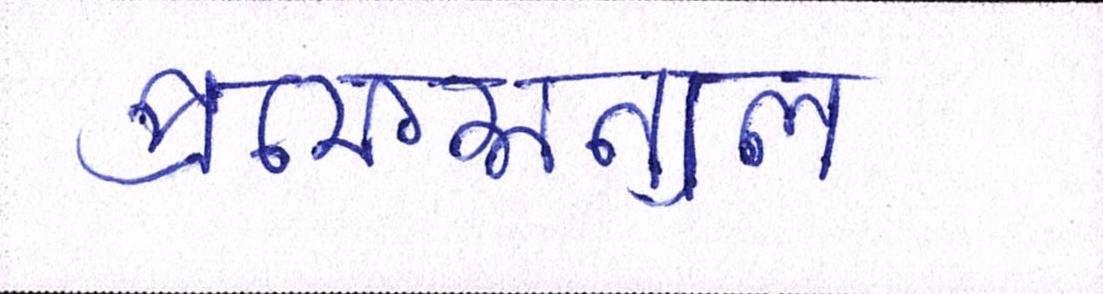 প্রফেসনাল